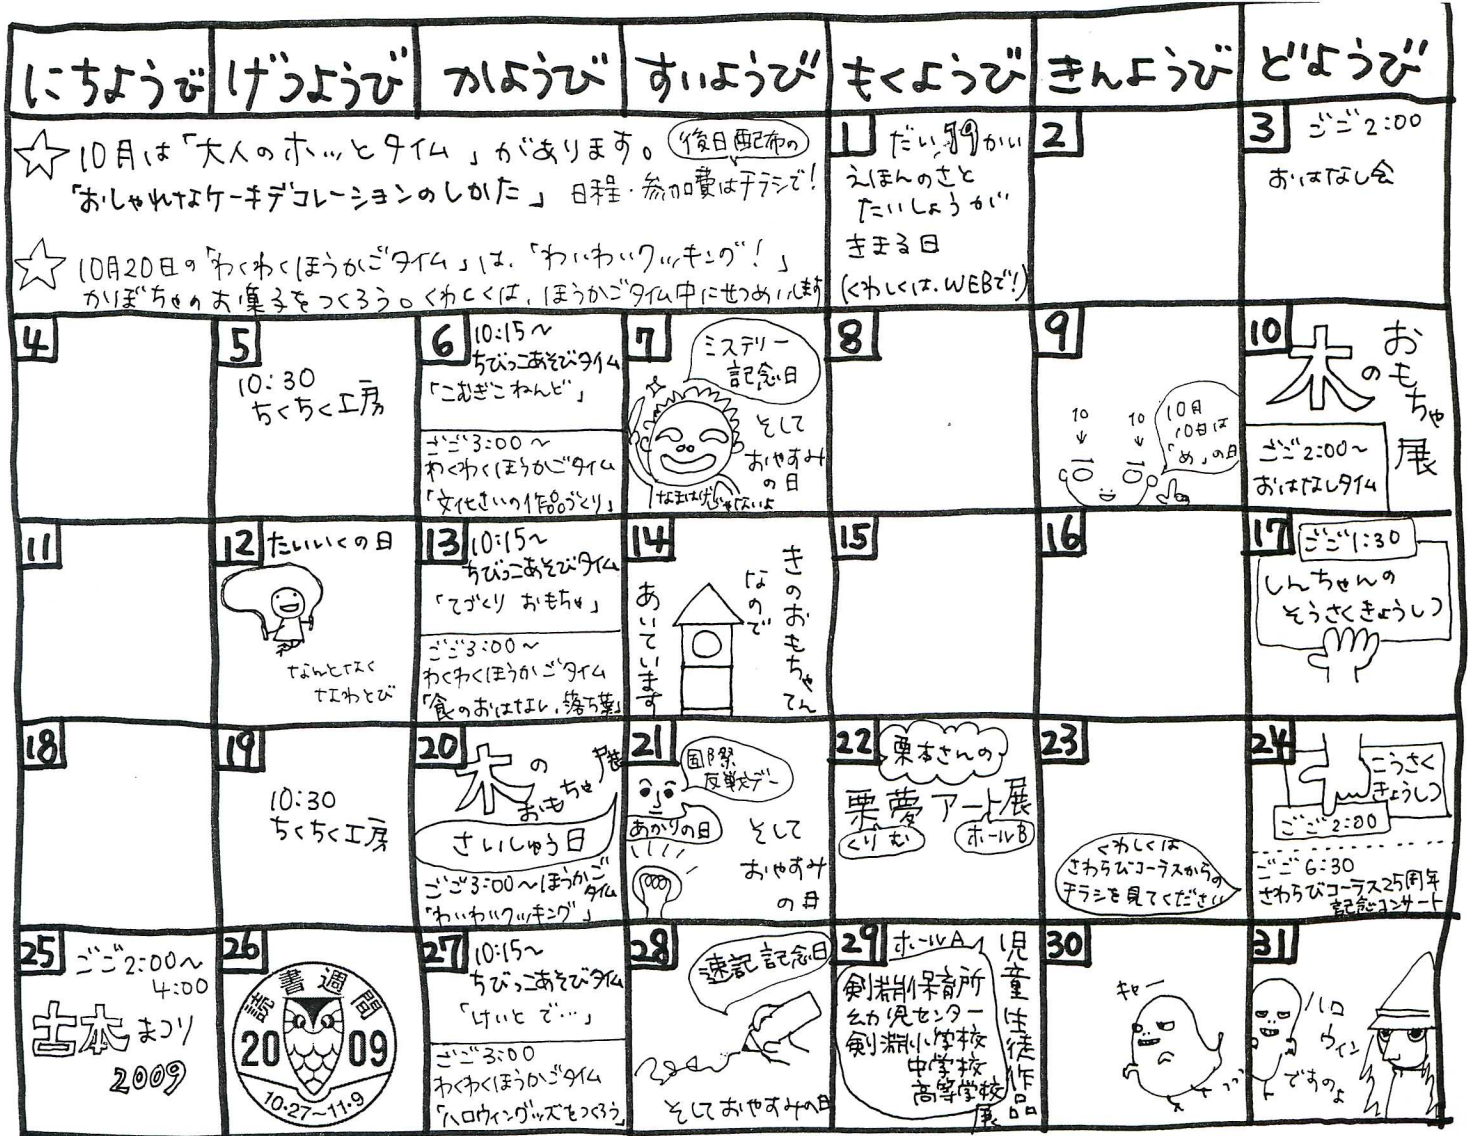 にちようび
げつようび
かようび
すいようび
もくようび
きんようび
どようび
☆10月は「大人のホッとタイム」があります。
後日配布の
「おしゃれなケーキデコレーションのしかた」日程・参加費はチラシで!
☆10月20日の「わくわくほうかごタイム」は、「わいわいクッキング!」
かぼちゃのお菓子をつくろう。くわしくは、ほうかごタイム中にせつめいします
1 だい19かい
えほんのさと
たいしょうが
きまる日
(くわしくは、WEBで!)
2
3 ごご2:00
おはなし会
4
5
10:30
ちくちく工房
6 10:15~
ちびっこあそびタイム
「こむぎこねんど」
ごご3:00~
わくわくほうかごタイム
「文化さいの作品づくり」
7
ミステリー
記念日
そして
おやすみ
の日
なまはげじゃないよ
8
9
10 10
↓ ↓
10月
10日は
「め」の日
10
木の
おもちゃ
展
ごご2:00~
おはなしタイム
11
12 たいいくの日
なんとなく
なわとび
13 10:15~
ちびっこあそびタイム
「てづくり おもちゃ」
ごご3:00~
わくわくほうかごタイム
「食のおはなし、落ち葉」
14
きのおもちゃてん
なので
あいています
15
16
17 ごご1:30
しんちゃんの
そうさくきょうしつ
18
19
10:30
ちくちく工房
20
木の
おもちゃ展
さいしゅう日
ごご3:00~ほうかご
タイム
「わいわいクッキング」
21
国際
反戦デー
あかりの日
そして
おやすみ
の日
22
栗本さんの
栗夢アート展
くりむ
ホールB
23
くわしくは
さわらびコーラスからの
チラシを見てください
24
こうさく
きょうしつ
ごご2:00
ごご6:30
さわらびコーラス25周年
記念コンサート
25 ごご2:00~
4:00
古本まつり
2009
26
読書週間
2009
10・27~11・9
27 10:15~
ちびっこあそびタイム
「けいとで…」
ごご3:00
わくわくほうかごタイム
「ハロウィングッズをつくろう」
28
速記記念日
そしておやすみの日
29 ホールA
剣淵保育所
幼児センター
剣淵小学校
中学校
高等学校
児童生徒作品
展
30
キャー
31
ハロ
ウィン
ですのよ